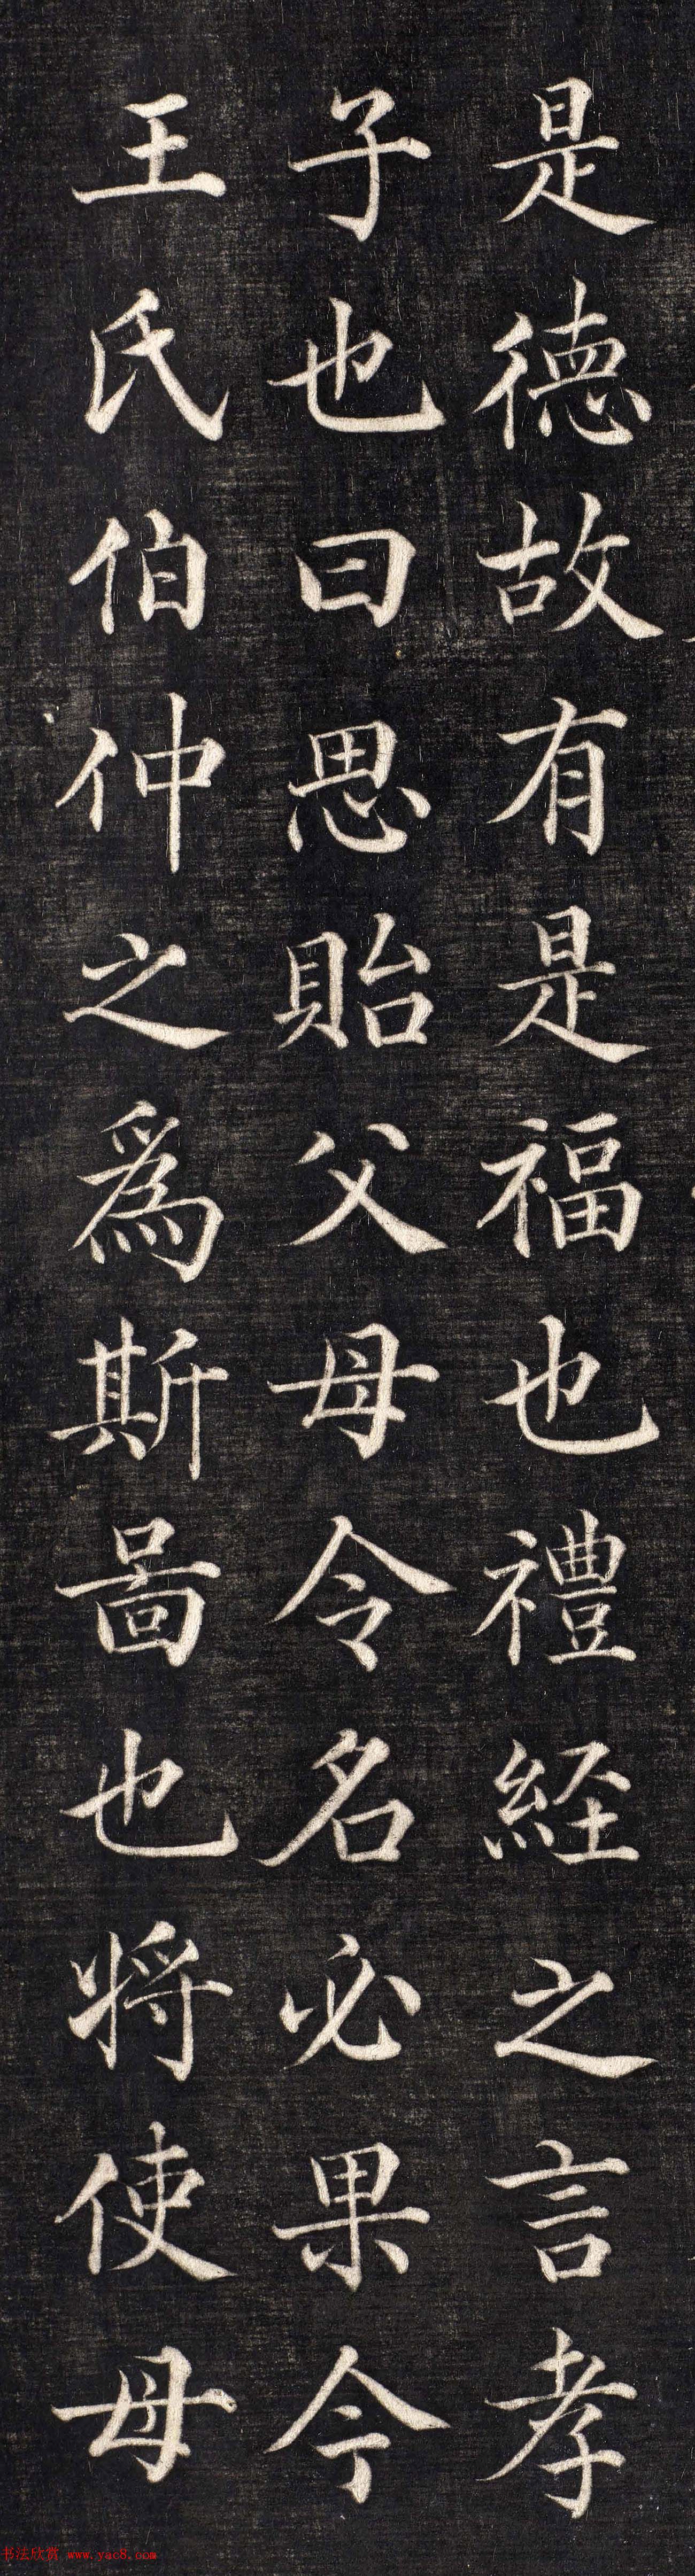 是德故有是福也禮経之言孝
子也曰思貽父母令名必果今
王氏伯仲之為斯啚也将使母
书法欣赏 www.yac8.com